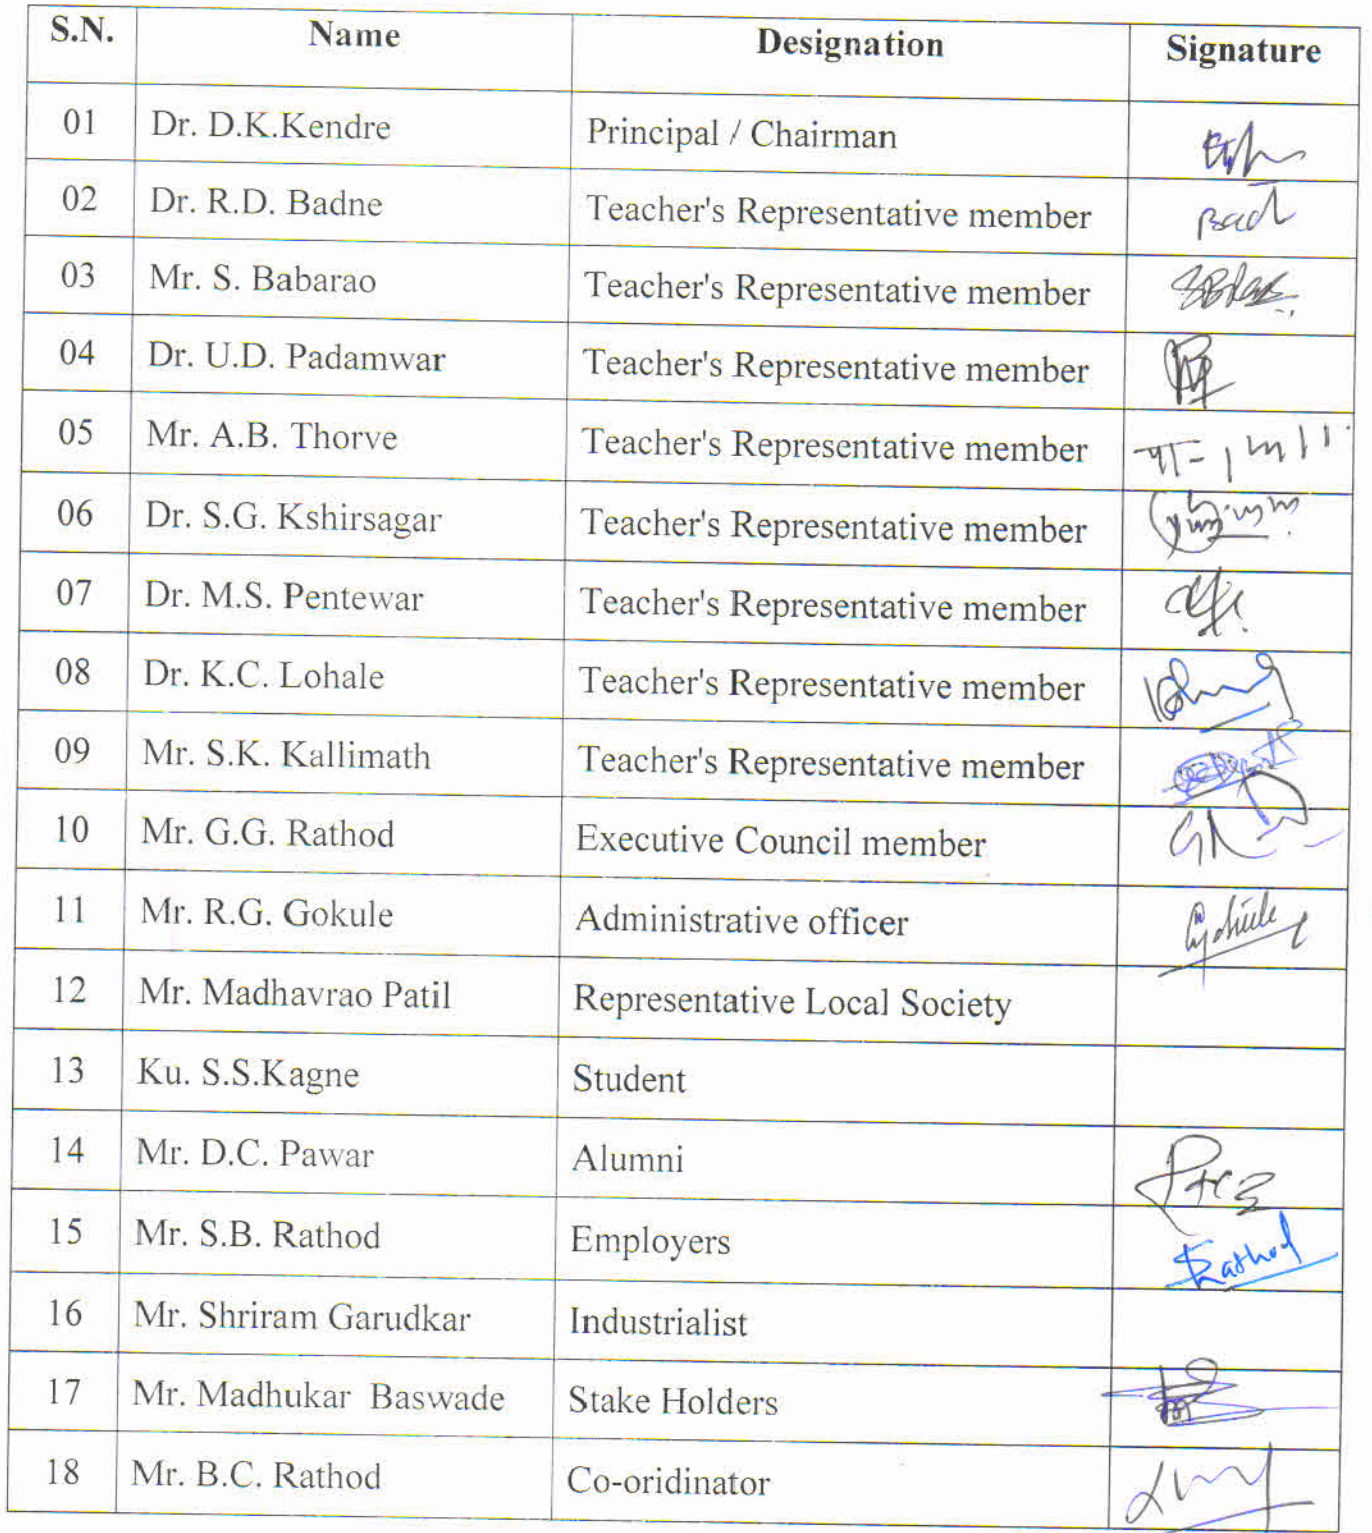 S.N. Name Designation Signature
01 Dr. D.K.Kendre Principal / Chairman
02 Dr. R.D. Badne Teacher's Representative member
03 Mr. S. Babarao Teacher's Representative member
04 Dr. U.D. Padamwar Teacher's Representative member
05 Mr. A.B. Thorve Teacher's Representative member
06 Dr. S.G. Kshirsagar Teacher's Representative member
07 Dr. M.S. Pentewar Teacher's Representative member
08 Dr. K.C. Lohale Teacher's Representative member
09 Mr. S.K. Kallimath Teacher's Representative member
10 Mr. G.G. Rathod Executive Council member
11 Mr. R.G. Gokule Administrative officer Gokule
12 Mr. Madhavrao Patil Representative Local Society
13 Ku. S.S.Kagne Student
14 Mr. D.C. Pawar Alumni
15 Mr. S.B. Rathod Employers Rathod
16 Mr. Shriram Garudkar Industrialist
17 Mr. Madhukar Baswade Stake Holders
18 Mr. B.C. Rathod Co-oridinator